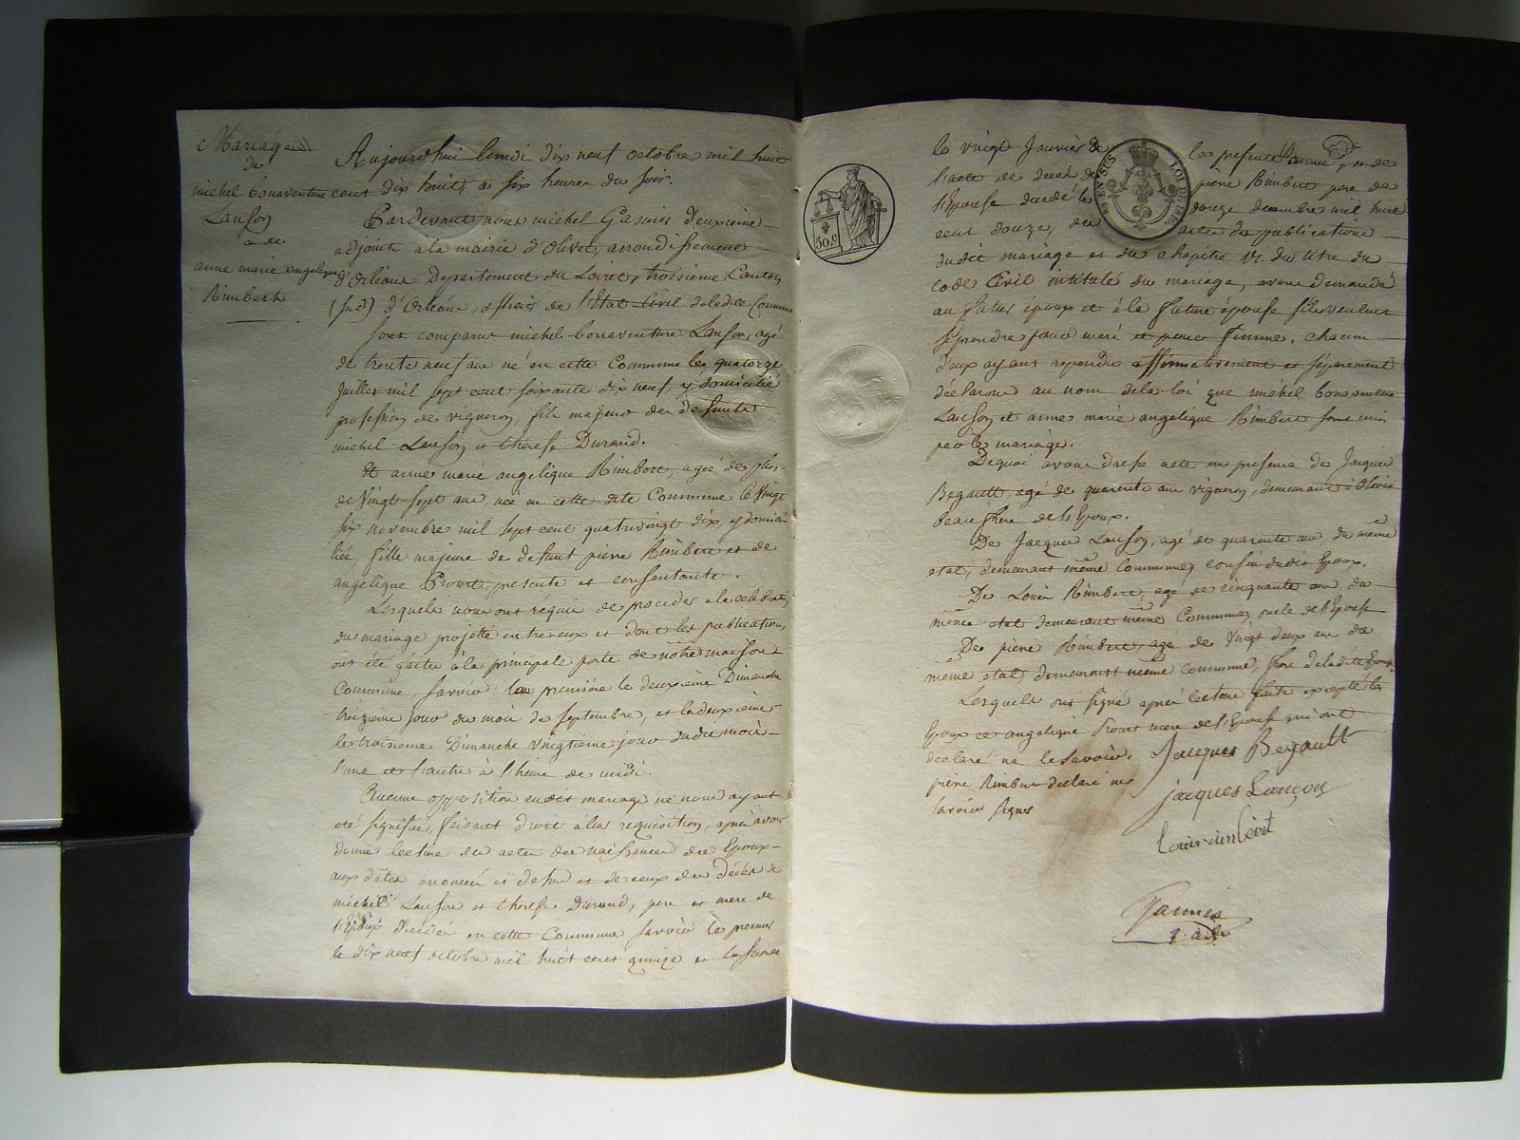 Mariage
de
michel bonaventure
Lanson
et de
anne marie angelique
Rimbert
Aujourdhui lundi dix neuf octobre mil huit
cent dix huit a six heures du soir.
Pardevant nous michel Gasnier deuxieme
adjoint a la mairie d'olivet, arrondissement
d'orléans Departement du Loiret, troisieme Canton
(sud) d'orléans, officier de l'Etat Civil deladite Commune
Sont comparus michel bonaventure Lanson, agé
de trente neuf ans né en cette Commune le quatorze
Juillet mil sept cent soixante dix neuf y domicilié
profession de vigneron, fils majeur des defunts
michel Lanson et therese Durand.
Et anne marie angelique Rimbert, agée de plus
de vingt sept ans née en cette dite Commune le vingt
six novembre mil sept cent quatrevingt dix, y domici
liée, fille majeure de defunt pierre Rimbert et de
angelique Proust, presente et consentante.
Lesquels nous ont requis de proceder a la celebration
du mariage projetté entre eux et dont les publications
ont été faites a la principale porte de notre maison
Commune, Savoir: la premiere le deuxieme Dimanche
treizieme jour du mois de septembre, et la deuxieme
le troisieme Dimanche vingtieme jour dudit mois
l'une et l'autre à l'heure de midi.
Aucune opposition audit mariage ne nous ayant
été signifiée, faisant droit à leur requisition, après avoir
donné lecture des actes de naissances des Epoux
aux dates enoncées et de ceux des décès de
michel Lanson et therese Durand, pere et mere de
l'Epoux décédés en cette Commune Savoir le premier
le dix neuf octobre mil huit cent quinze et la seconde
le vingt Janvier de la presente année, de
l'acte de décès de pierre Rimbert pere de
l'Epouse décédé le douze decembre mil huit
cent douze, des actes de publications
dudit mariage et du chapitre VI. du titre du
code Civil intitulé du mariage, avons demandé
au futur époux et à la future épouse s'ils veulent
se prendre pour mari et pour femme. chacun
d'eux ayant repondu affirmativement et séparement
déclarons au nom dela loi que michel bonaventure
Lanson et anne marie angelique Rimbert sont unis
par le mariage.
Dequoi avons dressé acte en presence de Jacques
Begault, agé de quarante ans vigneron, demeurant à Olivet
beau frere de l'Epoux.
De Jacques Lanson, agé de quarante ans du même
etat, demeurant même Commune, cousin dudit Epoux.
De Louis Rimbert, agé de cinquante ans du
même etat demeurant même Commune, oncle de l'Epouse
De pierre Rimbert, agé de vingt deux ans du
même etat demeurant même commune, frere deladite Epouse.
Lesquels ont signé après lecture faite excepté les
Epoux et angelique Proust mere de l'Epouse qui ont
declaré ne le savoir.
pierre Rimbert declaré ne
savoir signer
Jacques Begault
jacques Lançon
Louis rimbert
Gasnier
adj.
50.c
LOI DU